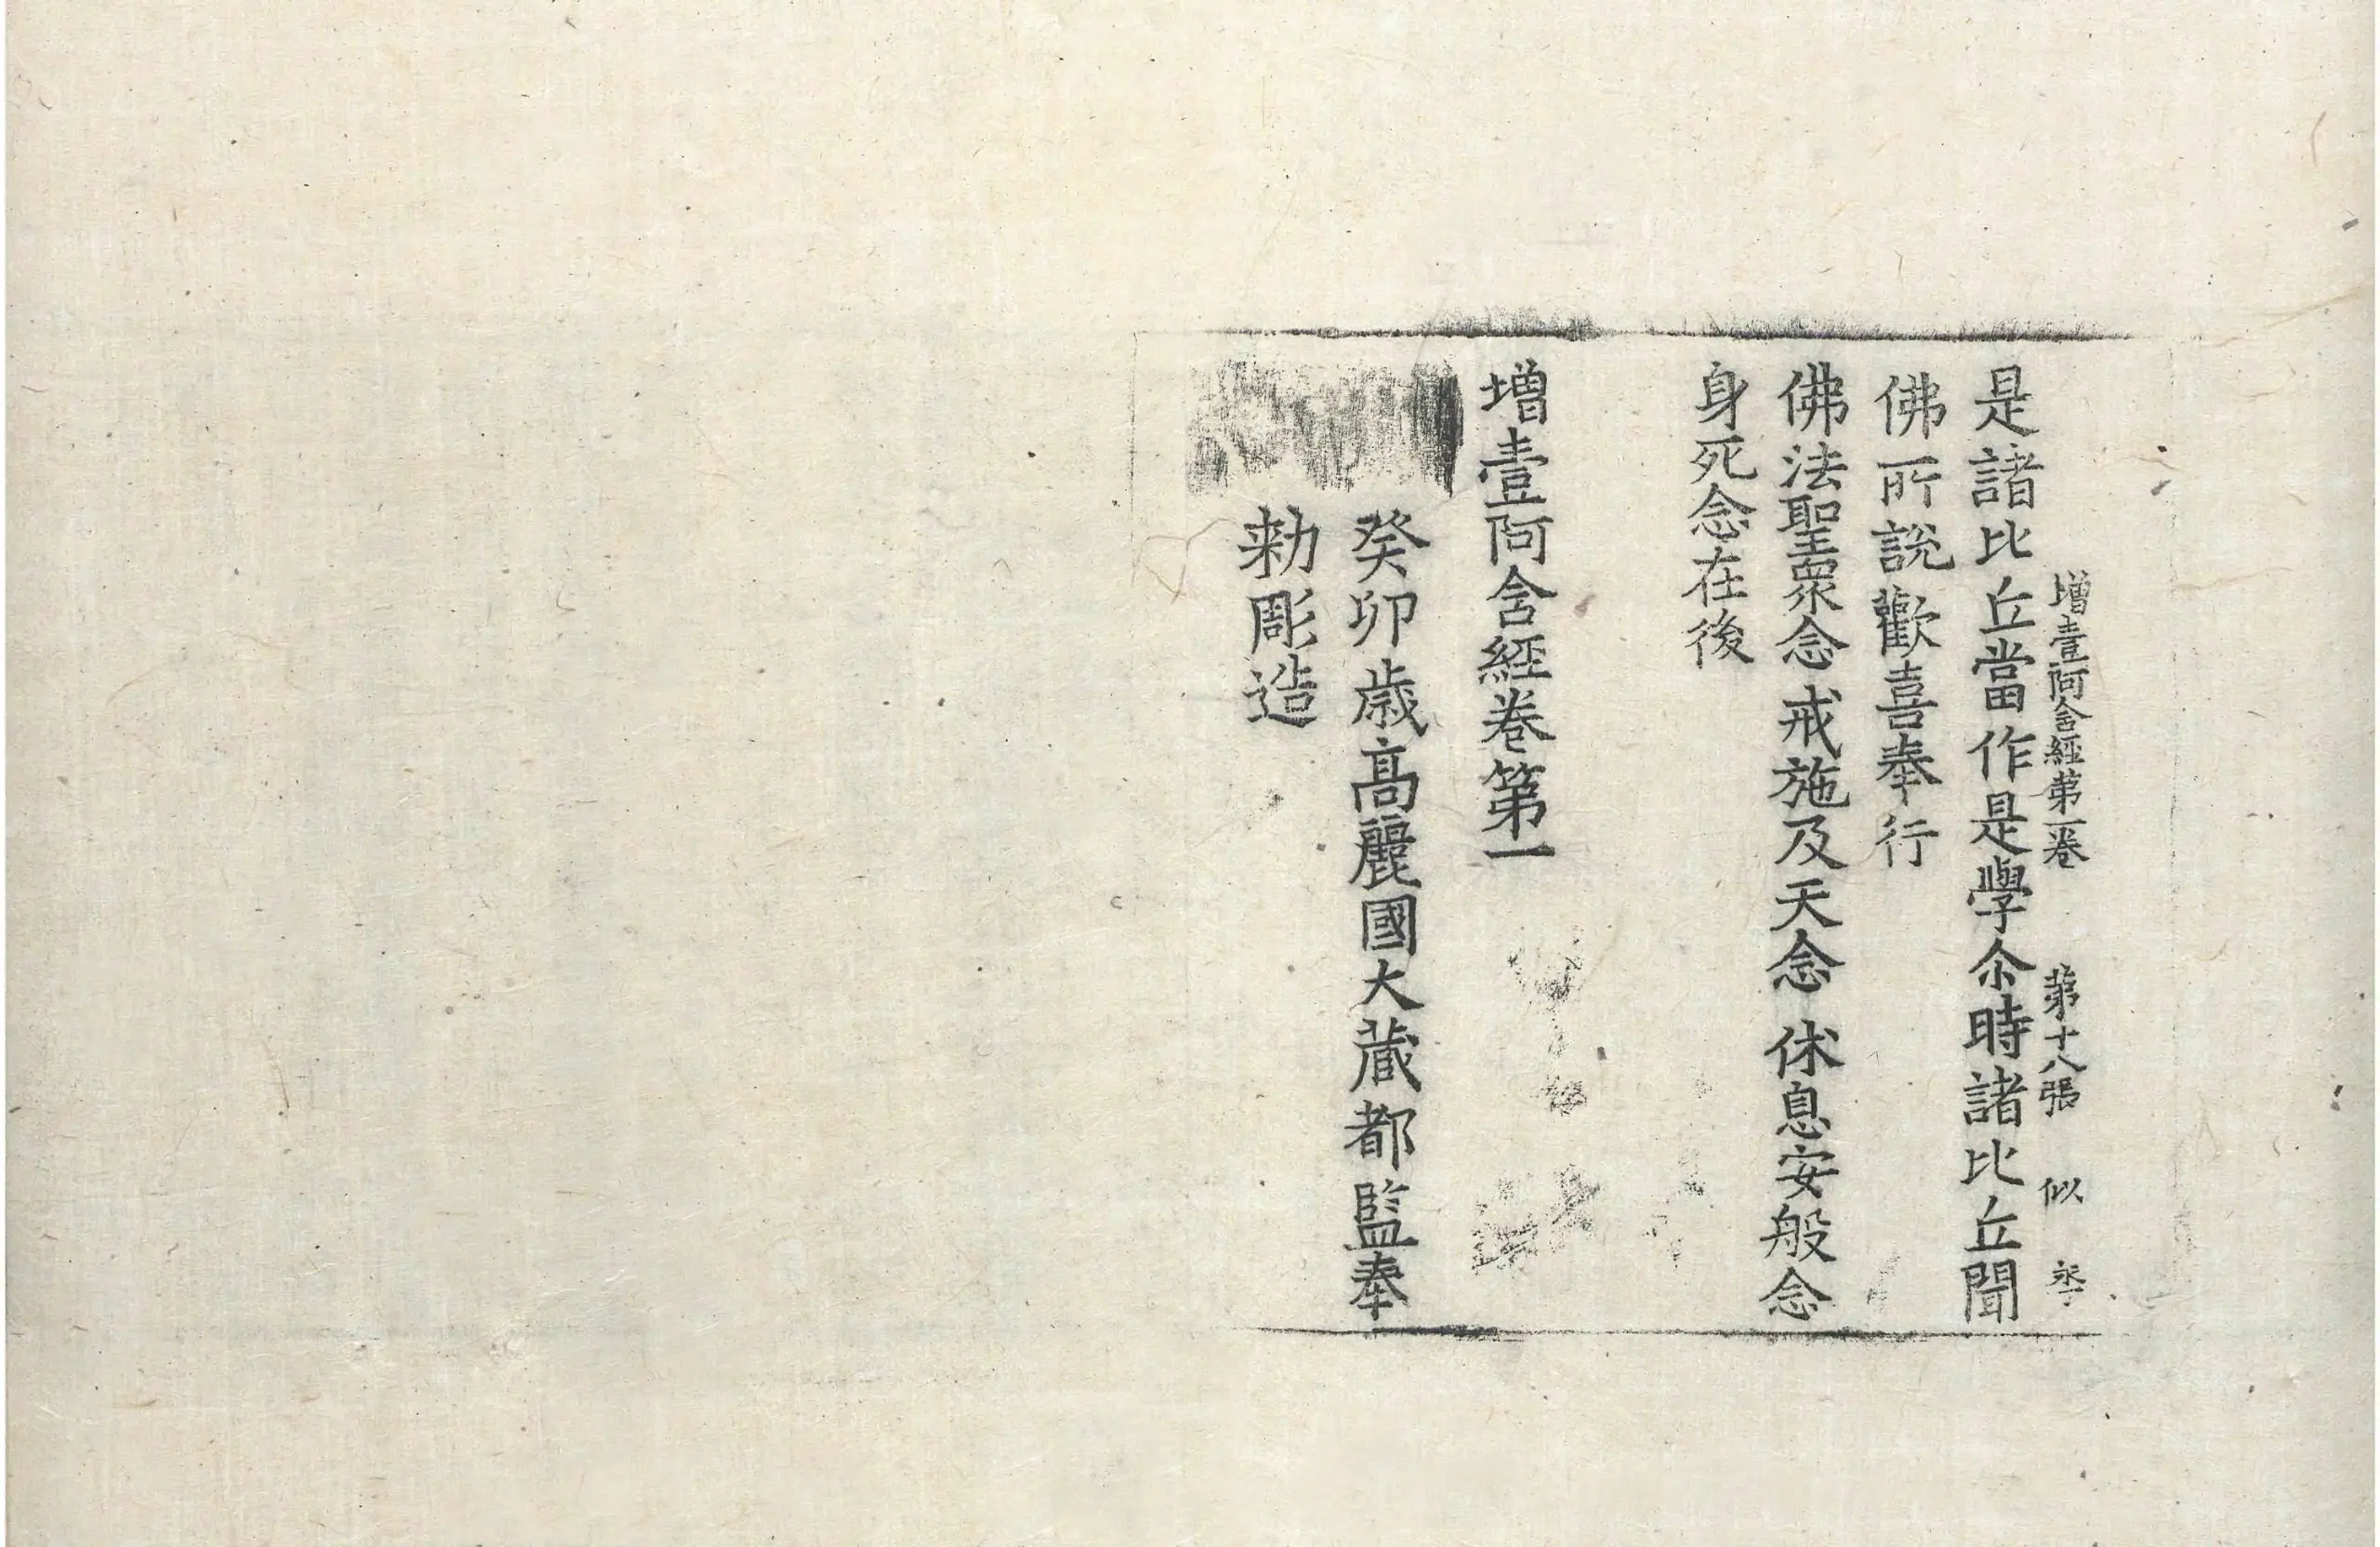 增壹阿含經第一卷 第十八張 似
是諸比丘當作是學尒時諸比丘聞
佛所說歡喜奉行
佛法聖衆念戒施及天念休息安般念
身死念在後
增壹阿含經卷第一
癸卯歲高麗國大藏都監奉
勑彫造